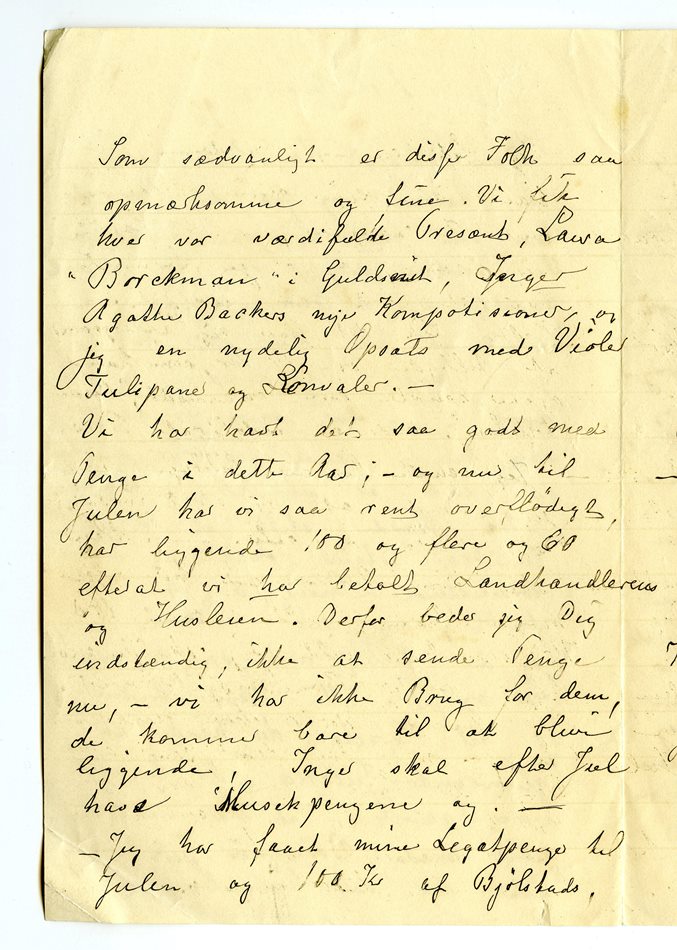 Som sædvanligt er disse Folk saa
opmærksomme og fine. Vi fik
hver vor værdifulde Præsent, Laura
"Borckman" i Guldsnit, Inger
Agathe Backers nye Kompotisioner, og
jeg en nydelig Opsats med Violer
Tulipaner og Konvaler. —
Vi har havt det saa godt med
Penge i dette Aar; – og nu til
Julen har vi saa rent overflødigt,
har liggende 100 og flere og 60
efterat vi har betalt Landhandlerens
og Husleien. Derfor beder jeg Dig
indstændig, ikke at sende Penge
nu, – vi har ikke Brug for dem,
de kommer bare til at blive
liggende, Inger skal efter Jul
have Musikpengene og. —
— Jeg har faaet mine Legatpenge til
Julen og 100 Kr af Bjölstads.